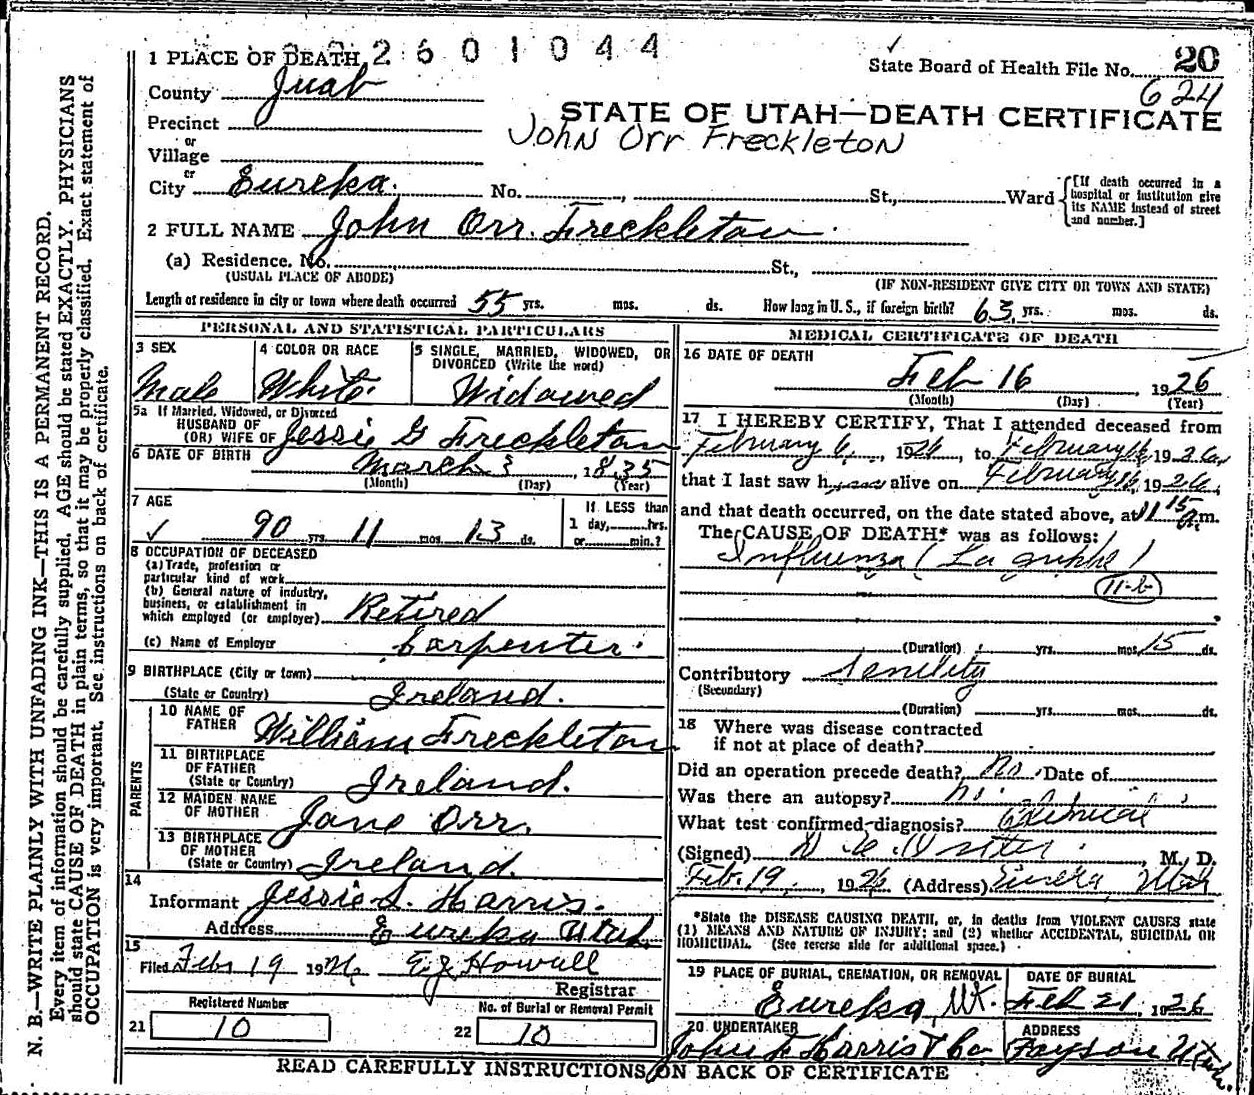 2601044
1 PLACE OF DEATH
State Board of Health File No. 20
624
County Juab
STATE OF UTAH—DEATH CERTIFICATE
Precinct
John Orr Freckleton
or
Village
or
City Eureka. No. , St., Ward {[If death occurred in a hospital or institution give its NAME instead of street and number.]
2 FULL NAME John Orr. Freckleton
(a) Residence. No. St.,
(USUAL PLACE OF ABODE) (IF NON-RESIDENT GIVE CITY OR TOWN AND STATE)
Length of residence in city or town where death occurred 55 yrs. mos. ds. How long in U. S., if foreign birth? 63 yrs. mos. ds.
PERSONAL AND STATISTICAL PARTICULARS
3 SEX
Male
4 COLOR OR RACE
White
5 SINGLE, MARRIED, WIDOWED, OR
DIVORCED (Write the word)
Widowed
5a If Married, Widowed, or Divorced
HUSBAND OF
(OR) WIFE OF Jessie G Freckleton
6 DATE OF BIRTH March 3, 1835
(Month) (Day) (Year)
7 AGE
✓ 90 yrs. 11 mos. 13 ds.
If LESS than
1 day, hrs.
or min.?
8 OCCUPATION OF DECEASED
(a) Trade, profession or
particular kind of work
(b) General nature of industry,
business, or establishment in
which employed (or employer) Retired
(c) Name of Employer Carpenter.
9 BIRTHPLACE (City or town)
(State or Country) Ireland.
PARENTS
10 NAME OF
FATHER William Freckleton
11 BIRTHPLACE
OF FATHER
(State or Country) Ireland.
12 MAIDEN NAME
OF MOTHER Jane Orr.
13 BIRTHPLACE
OF MOTHER
(State or Country) Ireland.
14
Informant Jessie S. Harris.
Address Eureka Utah
15
Filed Feb 19 1926 E J Howell
Registrar
Registered Number
21 10
No. of Burial or Removal Permit
22 10
MEDICAL CERTIFICATE OF DEATH
16 DATE OF DEATH
Feb 16 1926
(Month) (Day) (Year)
17 I HEREBY CERTIFY, That I attended deceased from
February 6, 1926, to February 16, 1926,
that I last saw h alive on February 16, 1926,
and that death occurred, on the date stated above, at 11 15 a.m.
The CAUSE OF DEATH* was as follows:
Influenza (La grippe)
11-b
(Duration) yrs. mos. 15 ds.
Contributory Senility
(Secondary)
(Duration) yrs. mos. ds.
18 Where was disease contracted
if not at place of death?
Did an operation precede death? No. Date of
Was there an autopsy? No.
What test confirmed diagnosis? Clinical
(Signed) , M. D.
Feb. 19, 1926 (Address) Eureka Utah
*State the DISEASE CAUSING DEATH, or, in deaths from VIOLENT CAUSES state
(1) MEANS AND NATURE OF INJURY; and (2) whether ACCIDENTAL, SUICIDAL OR
HOMICIDAL. (See reverse side for additional space.)
19 PLACE OF BURIAL, CREMATION, OR REMOVAL
Eureka, Ut.
DATE OF BURIAL
Feb 21, 1926
20 UNDERTAKER
John F Harris & Co
ADDRESS
Payson Utah.
READ CAREFULLY INSTRUCTIONS ON BACK OF CERTIFICATE
N. B.—WRITE PLAINLY WITH UNFADING INK—THIS IS A PERMANENT RECORD.
Every item of information should be carefully supplied. AGE should be stated EXACTLY. PHYSICIANS
should state CAUSE OF DEATH in plain terms, so that it may be properly classified. Exact statement of
OCCUPATION is very important. See instructions on back of certificate.